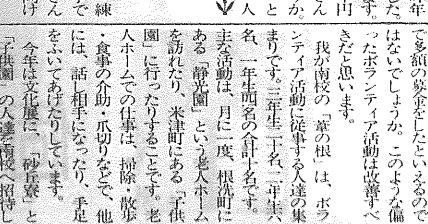 で多額の募金をしたといえるので
はないでしょうか。このような偏
ったボランティア活動は改善すべ
きだと思います。
我が南校の「葦の根」は、ボラ
ンティア活動に従事する人達の集
まりです。三年生二十名、二年生六
名、一年生四名の合計十名です。
主な活動は、月に一度、根洗町に
ある「静光園」という老人ホーム
を訪れたり、米津町にある「子供
園」に行ったりすることです。老
人ホームでの仕事は、掃除・散歩
・食事の介助・爪切りなどで、他
には、話し相手になったり、手足
をふいてあげたりしています。
今年は文化展に、「砂丘寮」と
「子供園」の人達を南校へ招待し